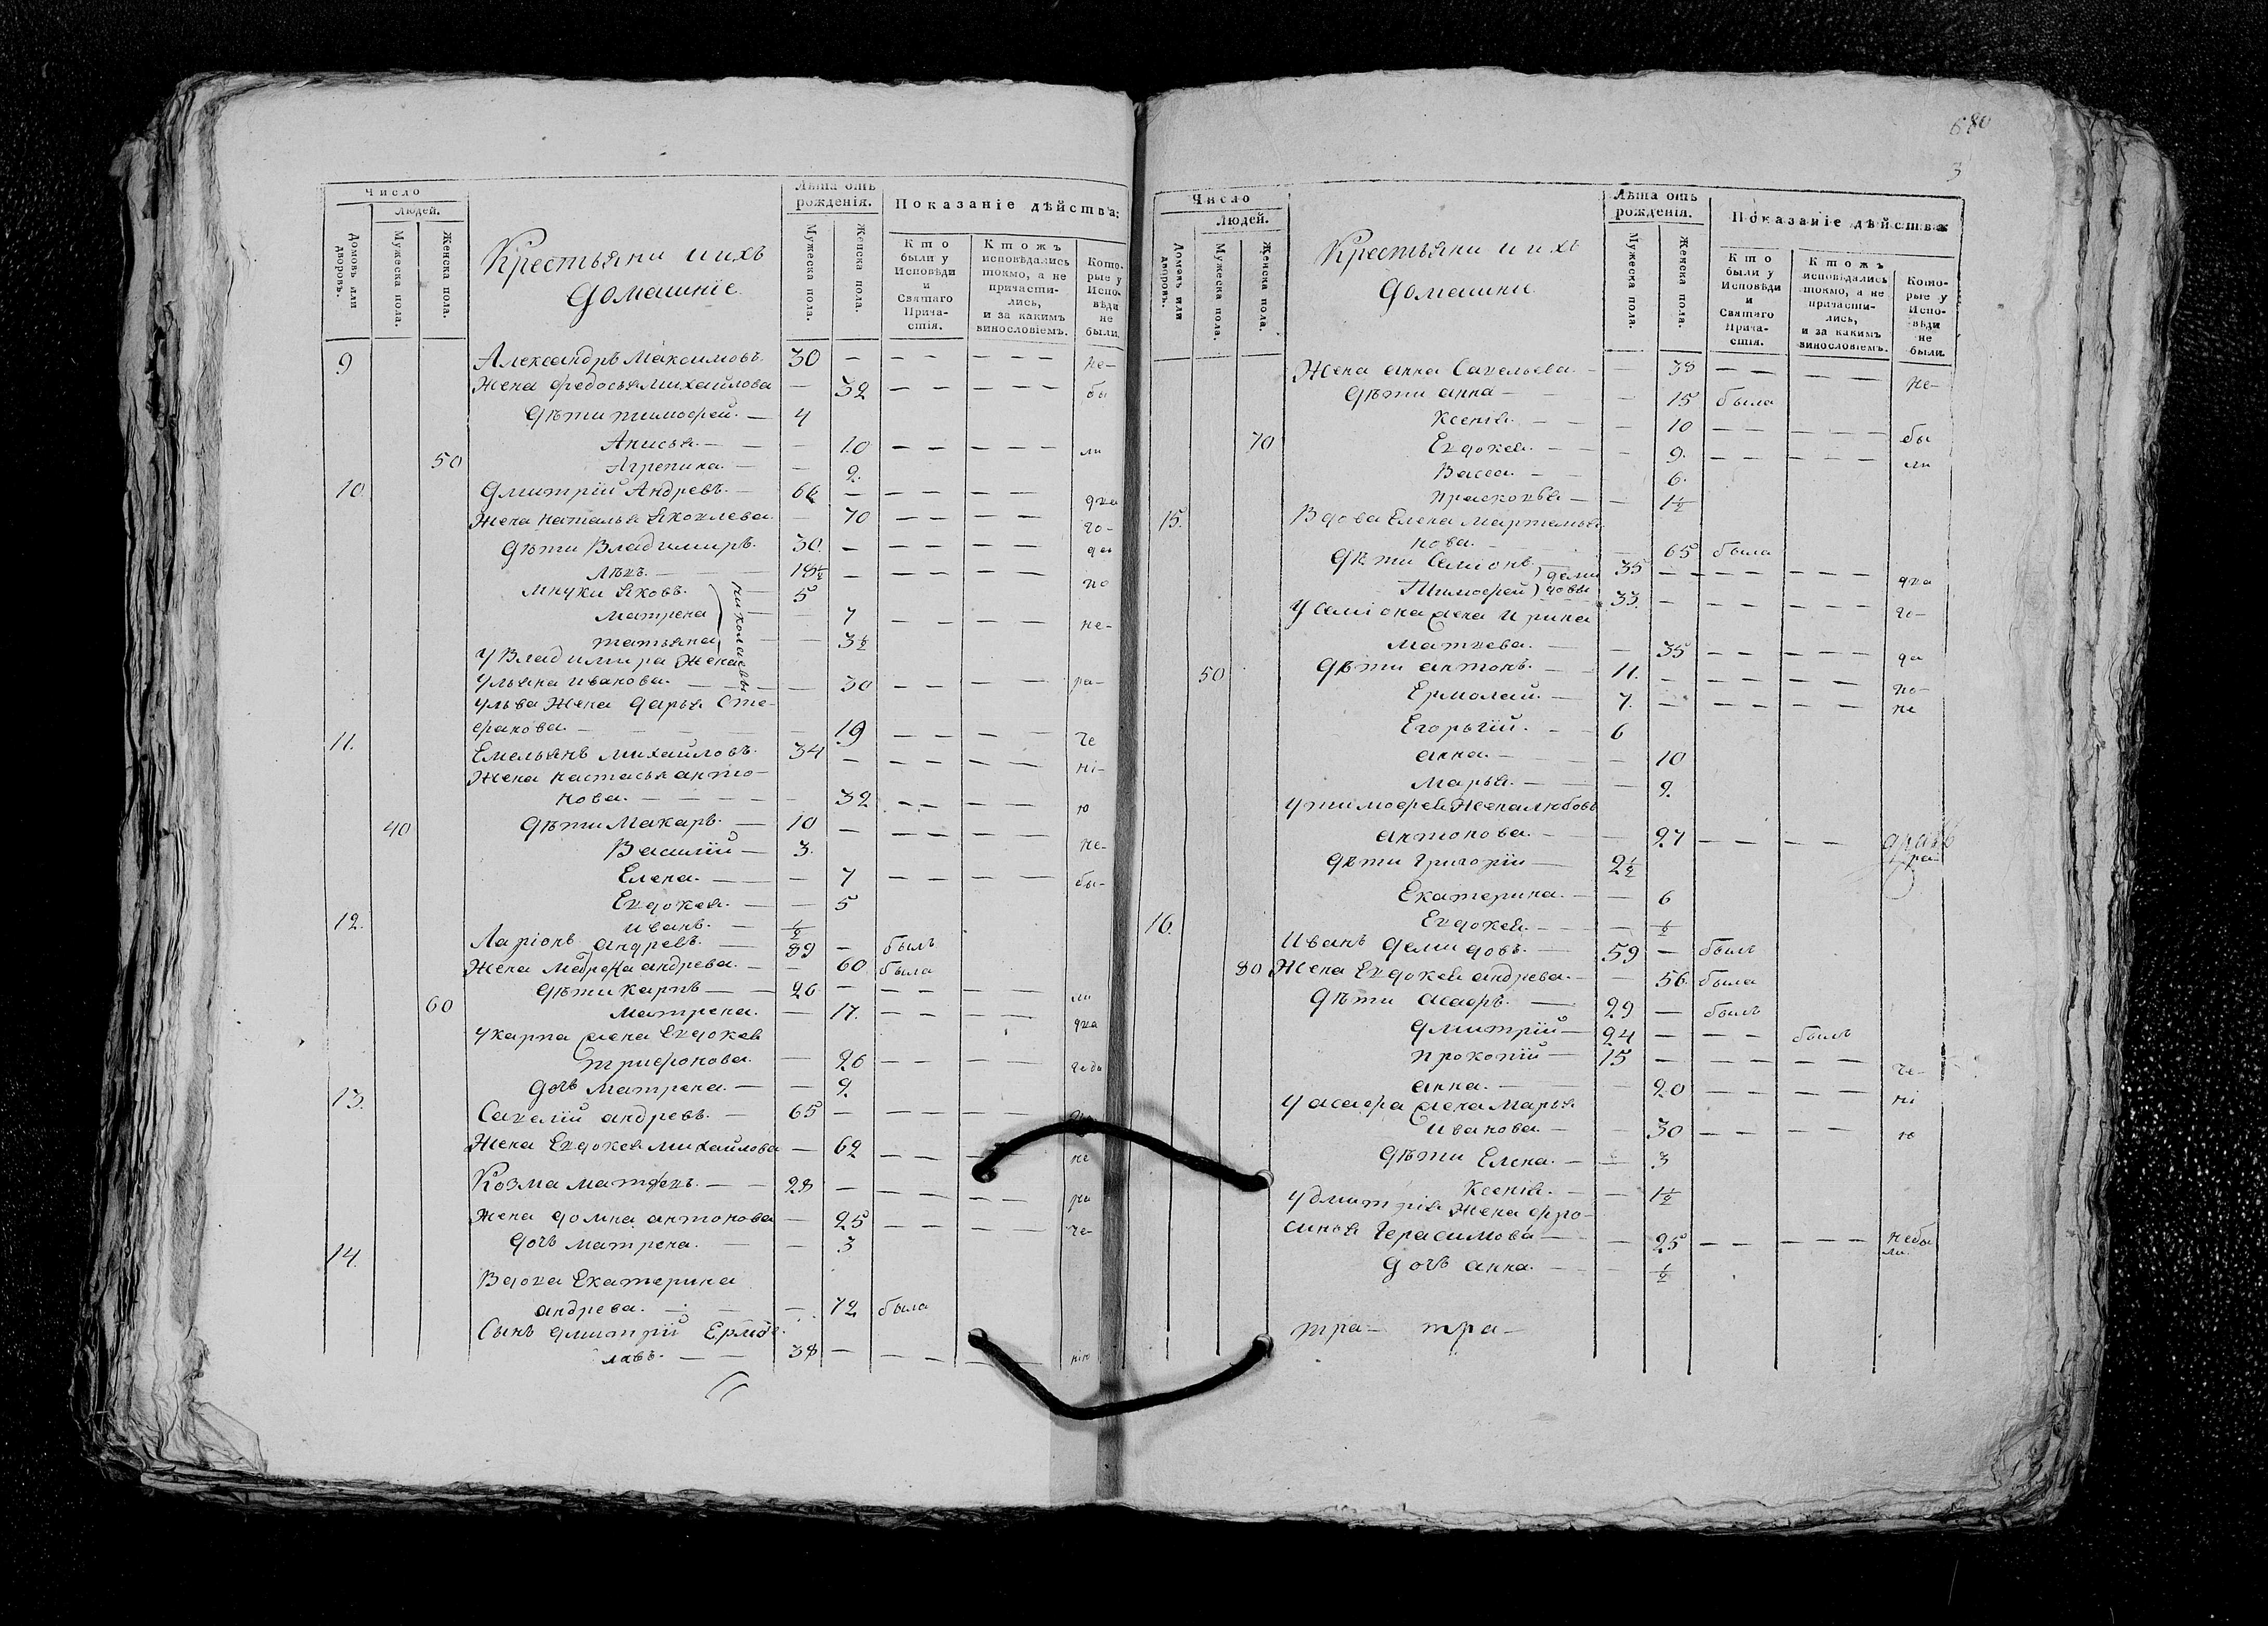 Число
Людей.
Домовъ или дворовъ.
Мужеска пола.
Женска пола.
Крестьяни и ихъ
домашніе
Лѣта отъ
рожденія.
Мужеска пола.
Женска пола.
Показаніе дѣйства:
Кто были у Исповѣди и Святаго Прича-стія.
Ктожъ исповѣдались токмо, а не причасти-лись, и за какимъ винословіемъ.
Кото-рые у Испо-вѣди не были.
9 Александръ Максимовъ. 30 — — — — — — не-
Жена Федосья Михайлова — 32 — — — — — бы
дѣти тимофей. — 4
Анисья. — — 10 — — — — — ли
50 Агрепина. — — 9.
10. Дмитрій Андревъ. — 66 — — — — — два
Жена наталья Яковлева. — 70 — — — — — го-
дѣти Владимиръ. 30. — — — — — — да
Львъ. — 18½ — — — — — — по
мнуки Яковъ. 5
матрена 7 — — — — — не-
татьяна — 3½
николаевы
у Владимира жена
ульяна иванова. — — — 30 — — — — ра-
у льва жена дарья Сте-
фанова. — 19 — — — — че
11. Емельянъ михайловъ. 34 — — — — — — ні-
Жена настасья анто-
нова. — — — — 32 — — — — ю
40 дѣти Макаръ. — 10 — — — — — — не-
Василій — 3.
Елена. — — 7 — — — — — бы-
Евдокея. — — 5
иванъ. — ½
12. Ларіонъ андревъ. — 59 — былъ
Жена андрева. — — 60 была
дѣти карпъ — — 26 — — — — — — ли
60 матрена. — 17. — — — — — два
у карпа жена Евдокея
трифонова. — 26 — — — — годы
дочь матрена. — — 9.
13. Савелій андревъ. — 65 — — — — — —
Жена Евдокея михайлова — 62 — — — — не
Козма матвевъ. — — 28 — — — — — — ра
Жена домна антонова — 25 — — — — — че-
дочь матрена. — — 3
14. Вдова Екатерина
андрева. — — — 72 была
Сынъ дмитрій Ермо-
лаевъ. — — 38 — — — — — — нію
680
3
Число
Людей.
Домовъ или дворовъ.
Мужеска пола.
Женска пола.
Крестьяни и ихъ
домашніе
Лѣта отъ
рожденія.
Мужеска пола.
Женска пола.
Показаніе дѣйства:
Кто были у Исповѣди и Святаго Прича-стія.
Ктожъ исповѣдались токмо, а не причасти-лись, и за какимъ винословіемъ.
Кото-рые у Испо-вѣди не были.
Жена анна Савельева. — 38 — — — — не-
дѣти анна — — 15 была
Ксенія. — — — 10 — — — — — бы
70 Евдокея. — — — 9. — — — — — ли
Васса. — — 6.
Прасковья — — 1½
15. Вдова Елена Мартемья-
нова. — — 65 была
дѣти Симіонъ 35 — — — — — — два
Тимофей 33. — — — — — го-
деми
довы
у Симіона жена Ирина
Матвева. — — 35 — — — — — да
50 дѣти антонъ. — — 11. — — — — — — по-
Ермолай. — 7. — — — — — — не
Егорьгій. — — 6
анна. — — — 10
Марья. — — 9.
у тимофея жена любовь
антонова. — — 27 — — — —
ра-
дѣти Григорій — 2½
Екатерина. — — 6
Евдокея. — — — ½
16. Иванъ демидовъ. — 59 — былъ
80 Жена Евдокея андрева. — — 56. была
дѣти — 29 — былъ
дмитрій — 24 — — — былъ
прокопій — 15 — — — — — — че-
анна. — — 20 — — — — — ні
у жена Марья
Иванова. — — 30 — — — — — ю
дѣти Елена. — — 3
Ксенія. — — 1½
у дмитрія жена Афро-
синья Герасимова — — 25 — — — — — небы
ли.
дочь анна. — — ½
тра— тра—